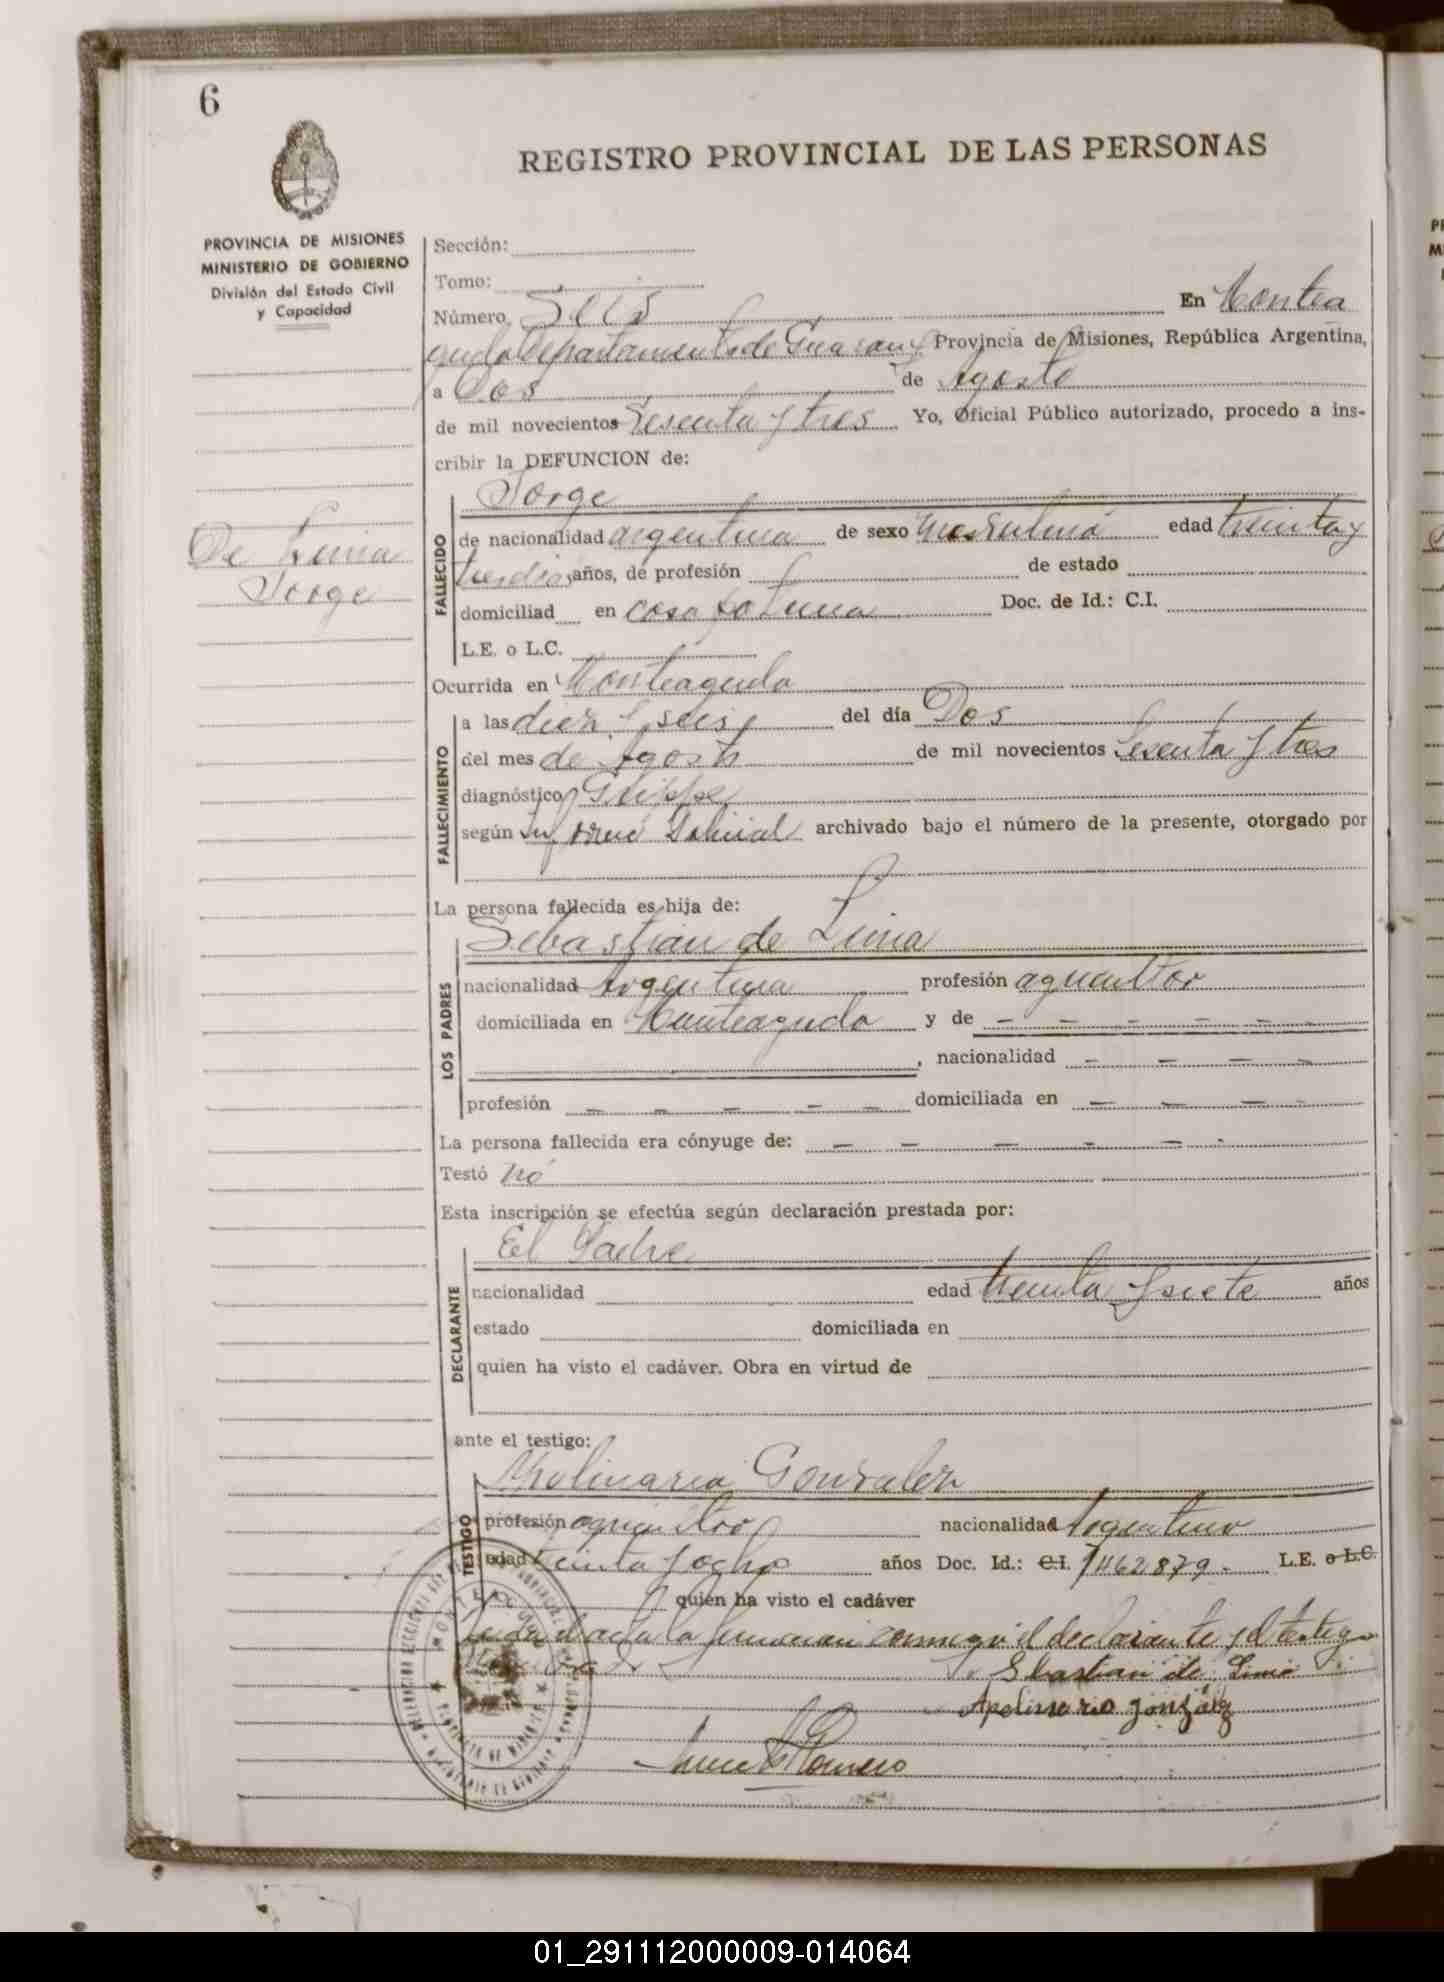 6
REGISTRO PROVINCIAL DE LAS PERSONAS
PROVINCIA DE MISIONES
MINISTERIO DE GOBIERNO
División del Estado Civil
y Capacidad
Sección:
Tomo:
Número Seis En Montea
gudo Departamento de Guarany Provincia de Misiones, República Argentina,
a Dos de Agosto
de mil novecientos Sesenta y tres Yo, Oficial Público autorizado, procedo a ins-
cribir la DEFUNCION de:
De Lima
Jorge
FALLECIDO
Jorge
de nacionalidad argentina de sexo masculino edad treinta y
tres dias años, de profesión de estado
domiciliad en casa paterna Doc. de Id.: C.I.
L.E. o L.C.
Ocurrida en Monteagudo
FALLECIMIENTO
a las diez y seis del día Dos
del mes de Agosto de mil novecientos Sesenta y tres
diagnóstico Grippe
según Informe Policial archivado bajo el número de la presente, otorgado por
La persona fallecida es hija de:
LOS PADRES
Sebastian de Lima
nacionalidad Argentina profesión agricultor
domiciliada en Monteagudo y de – – – – – –
, nacionalidad – – – –
profesión – – – – – domiciliada en – – – –
La persona fallecida era cónyuge de: – – – – –
Testó nó
Esta inscripción se efectúa según declaración prestada por:
DECLARANTE
El Padre
nacionalidad edad treinta y siete años
estado domiciliada en
quien ha visto el cadáver. Obra en virtud de
ante el testigo:
TESTIGO
Gonzalez
profesión agricultor nacionalidad Argentino
edad treinta y ocho años Doc. Id.: C.I. 7462879 - L.E. o L.C.
quien ha visto el cadáver
Leida el acta la firman conmigo el declarante y el testigo
Sbastian de Lima
Apolinario Gonzalez
Romero
01_291112000009-014064